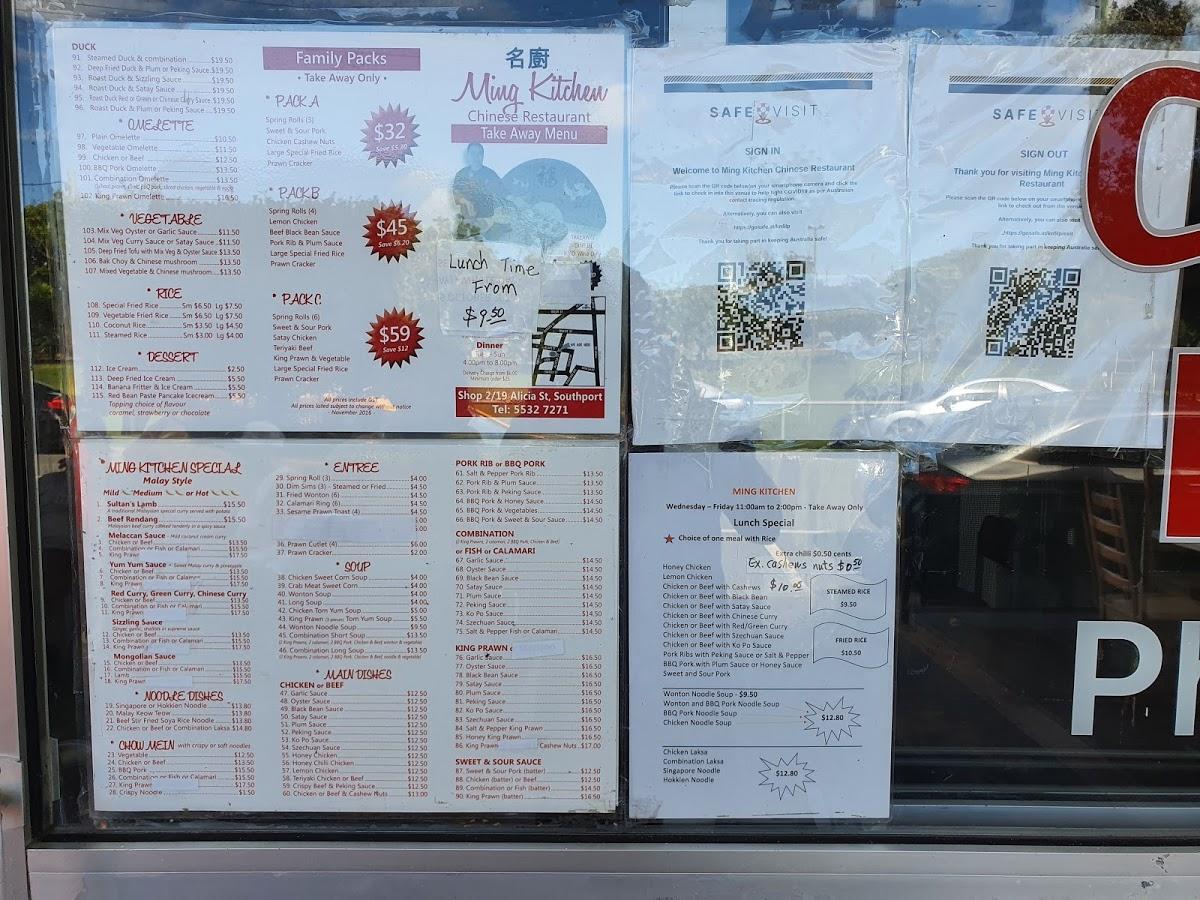 DUCK
91. Steamed Duck & combination $19.50
92. Deep Fried Duck & Plum or Peking Sauce $19.50
93. Roast Duck & Sizzling Sauce $19.50
94. Roast Duck & Satay Sauce $19.50
95. Roast Duck Red or Green or Chinese Curry Sauce $19.50
96. Roast Duck & Plum or Peking Sauce $19.50
OMELETTE
97. Plain Omelette $10.50
98. Vegetable Omelette $11.50
99. Chicken or Beef $12.50
100. BBQ Pork Omelette $13.50
101. Combination Omelette $13.50
102. King Prawn Omelette $16.50
VEGETABLE
103. Mix Veg Oyster or Garlic Sauce $11.50
104. Mix Veg Curry Sauce or Satay Sauce $11.50
105. Deep Fried Tofu with Mix Veg & Oyster Sauce $13.50
106. Bak Choy & Chinese mushroom $13.50
107. Mixed Vegetable & Chinese mushroom $13.50
RICE
108. Special Fried Rice Sm $6.50 Lg $7.50
109. Vegetable Fried Rice Sm $6.50 Lg $7.50
110. Coconut Rice Sm $3.50 Lg $4.50
111. Steamed Rice Sm $3.00 Lg $4.00
DESSERT
112. Ice Cream $2.50
113. Deep Fried Ice Cream $5.50
114. Banana Fritter & Ice Cream $5.50
115. Red Bean Paste Pancake Icecream $5.50
Topping choice of flavour
caramel, strawberry or chocolate
Family Packs
• Take Away Only •
PACK A
Spring Rolls (3)
Sweet & Sour Pork
Chicken Cashew Nuts
Large Special Fried Rice
Prawn Cracker
$32
Save $5.80
PACK B
Spring Rolls (4)
Lemon Chicken
Beef Black Bean Sauce
Pork Rib & Plum Sauce
Large Special Fried Rice
Prawn Cracker
$45
Save $6.20
PACK C
Spring Rolls (6)
Sweet & Sour Pork
Satay Chicken
Teriyaki Beef
King Prawn & Vegetable
Large Special Fried Rice
Prawn Cracker
$59
Save $12
All prices include GST
All prices listed subject to change without notice
November 2016
名廚
Ming Kitchen
Chinese Restaurant
Take Away Menu
Lunch Time
From
$9.50
Dinner
4.00pm to 8.00pm
Shop 2/19 Alicia St, Southport
Tel: 5532 7271
SAFE VISIT
SIGN IN
Welcome to Ming Kitchen Chinese Restaurant
Please scan the QR code below on your smartphone camera and click the
link to check in into this venue to help fight COVID19 as per Australian
contact tracing regulation.
Alternatively, you can also visit
Thank you for taking part in keeping Australia safe!
SAFE VISI
SIGN OUT
Thank you for visiting Ming Kitc
Restaurant
Please scan the QR code below on your smartphone
link to check out from the venue
Alternatively, you can also visit
Thank you for taking part in keeping Australia sa
MING KITCHEN SPECIAL
Malay Style
Mild Medium or Hot
1. Sultan's Lamb $15.50
A traditional Malaysian special curry served with potato
2. Beef Rendang $15.50
Malaysian beef curry cooked tenderly in a spicy sauce
Melaccan Sauce - Mild coconut cream curry
3. Chicken or Beef $13.50
4. Combination or Fish or Calamari $15.50
5. King Prawn $17.50
Yum Yum Sauce - Sweet Malay curry & pineapple
6. Chicken or Beef $13.50
7. Combination or Fish or Calamari $15.50
8. King Prawn $17.50
Red Curry, Green Curry, Chinese Curry
9. Chicken or Beef $13.50
10. Combination or Fish or Calamari $15.50
11. King Prawn $17.50
Sizzling Sauce
Ginger, garlic, shallots in supreme sauce
12. Chicken or Beef $13.50
13. Combination or Fish or Calamari $15.50
14. King Prawn $17.50
Mongolian Sauce
15. Chicken or Beef $13.50
16. Combination or Fish or Calamari $15.50
17. Lamb $15.50
18. King Prawn $17.50
NOODLE DISHES
19. Singapore or Hokkien Noodle $13.80
20. Malay Keow Teow $13.80
21. Beef Stir Fried Soya Rice Noodle $13.80
22. Chicken or Beef or Combination Laksa $14.80
CHOW MEIN with crispy or soft noodles
23. Vegetable $12.50
24. Chicken or Beef $13.50
25. BBQ Pork $15.50
26. Combination or Fish or Calamari $15.50
27. King Prawn $17.50
28. Crispy Noodle $1.50
ENTREE
29. Spring Roll (3) $4.00
30. Dim Sims (3) - Steamed or Fried $4.50
31. Fried Wonton (6) $4.50
32. Calamari Ring (6) $4.50
33. Sesame Prawn Toast (4) $4.50
36. Prawn Cutlet (4) $6.00
37. Prawn Cracker $2.00
SOUP
38. Chicken Sweet Corn Soup $4.00
39. Crab Meat Sweet Corn $4.00
40. Wonton Soup $4.00
41. Long Soup $4.00
42. Chicken Tom Yum Soup $5.00
43. King Prawn Tom Yum Soup $5.50
44. Wonton Noodle Soup $9.50
45. Combination Short Soup $13.50
46. Combination Long Soup $13.50
MAIN DISHES
CHICKEN or BEEF
47. Garlic Sauce $12.50
48. Oyster Sauce $12.50
49. Black Bean Sauce $12.50
50. Satay Sauce $12.50
51. Plum Sauce $12.50
52. Peking Sauce $12.50
53. Ko Po Sauce $12.50
54. Szechuan Sauce $12.50
55. Honey Chicken $12.50
56. Honey Chilli Chicken $12.50
57. Lemon Chicken $12.50
58. Teriyaki Chicken or Beef $12.50
59. Crispy Beef & Peking Sauce $12.50
60. Chicken or Beef & Cashew Nuts $13.00
PORK RIB or BBQ PORK
61. Salt & Pepper Pork Rib $13.50
62. Pork Rib & Plum Sauce $13.50
63. Pork Rib & Peking Sauce $13.50
64. BBQ Pork & Honey Sauce $14.50
65. BBQ Pork & Vegetables $14.50
66. BBQ Pork & Sweet & Sour Sauce $14.50
COMBINATION
(2 King Prawn, 2 calamari, 2 BBQ Pork, Chicken & Beef)
or FISH or CALAMARI
67. Garlic Sauce $14.50
68. Oyster Sauce $14.50
69. Black Bean Sauce $14.50
70. Satay Sauce $14.50
71. Plum Sauce $14.50
72. Peking Sauce $14.50
73. Ko Po Sauce $14.50
74. Szechuan Sauce $14.50
75. Salt & Pepper Fish or Calamari $14.50
KING PRAWN
76. Garlic Sauce $16.50
77. Oyster Sauce $16.50
78. Black Bean Sauce $16.50
79. Satay Sauce $16.50
80. Plum Sauce $16.50
81. Peking Sauce $16.50
82. Ko Po Sauce $16.50
83. Szechuan Sauce $16.50
84. Salt & Pepper King Prawn $16.50
85. Honey King Prawn $16.50
86. King Prawn Cashew Nuts $17.00
SWEET & SOUR SAUCE
87. Sweet & Sour Pork (batter) $12.50
88. Chicken (batter) or Beef $12.50
89. Combination or Fish (batter) $14.50
90. King Prawn (batter) $16.50
MING KITCHEN
Wednesday – Friday 11:00am to 2:00pm - Take Away Only
Lunch Special
Choice of one meal with Rice
Extra chilli $0.50 cents
Ex. cashews nuts $0.50
Honey Chicken
Lemon Chicken
Chicken or Beef with Cashews $10.00
Chicken or Beef with Black Bean
Chicken or Beef with Satay Sauce
Chicken or Beef with Chinese Curry
Chicken or Beef with Red/Green Curry
Chicken or Beef with Szechuan Sauce
Chicken or Beef with Ko Po Sauce
Pork Ribs with Peking Sauce or Salt & Pepper
BBQ Pork with Plum Sauce or Honey Sauce
Sweet and Sour Pork
STEAMED RICE
$9.50
FRIED RICE
$10.50
Wonton Noodle Soup - $9.50
Wonton and BBQ Pork Noodle Soup
BBQ Pork Noodle Soup
Chicken Noodle Soup
$12.80
Chicken Laksa
Combination Laksa
Singapore Noodle
Hokkien Noodle
$12.80